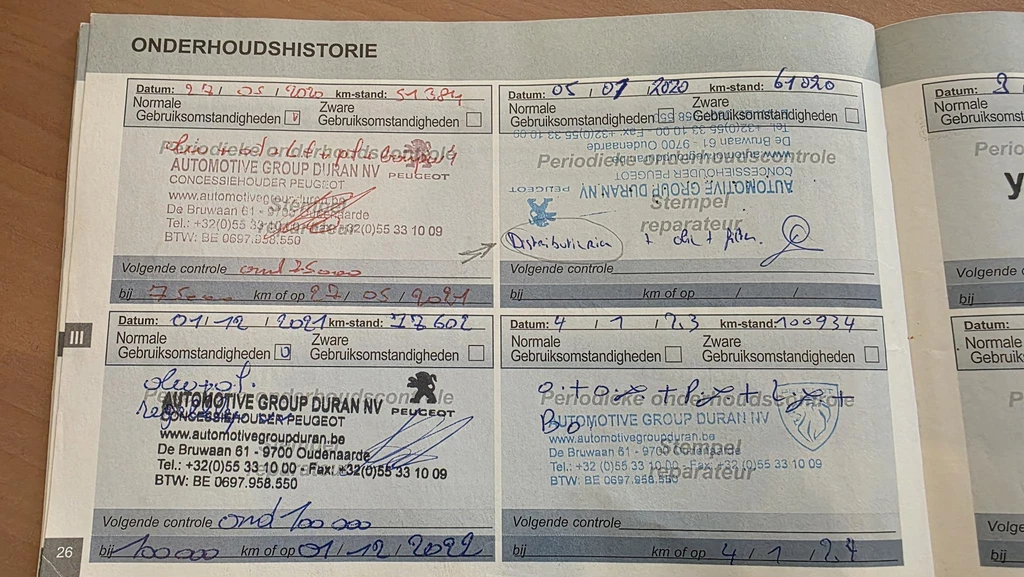 ONDERHOUDSHISTORIE
Datum: 27 / 05 / 2020 km-stand: 51384
Normale Gebruiksomstandigheden V Zware Gebruiksomstandigheden
Periodieke onderhoudscontrole
AUTOMOTIVE GROUP DURAN NV
CONCESSIEHOUDER PEUGEOT
PEUGEOT
www.automotivegroupduran.be
De Bruwaan 61 - 9700 Oudenaarde
Tel.: +32(0)55 33 10 00 - Fax: +32(0)55 33 10 09
BTW: BE 0697.958.550
Stempel reparateur
Volgende controle ond 75000
bij 75000 km of op 27 / 05 / 2021
Datum: 05 / 07 / 2020 km-stand: 61020
Normale Gebruiksomstandigheden Zware Gebruiksomstandigheden
Periodieke onderhoudscontrole
Tel.: +32(0)55 33 10 00 - Fax: +32(0)55 33 10 09
De Bruwaan 61 - 9700 Oudenaarde
www.automotivegroupduran.be
CONCESSIEHOUDER PEUGEOT
AUTOMOTIVE GROUP DURAN NV
PEUGEOT
Stempel
reparateur
Distributieriem + olie + filter.
Volgende controle
bij km of op / /
III
Datum: 01 / 12 / 2021 km-stand: 77602
Normale Gebruiksomstandigheden Zware Gebruiksomstandigheden
Periodieke onderhoudscontrole
AUTOMOTIVE GROUP DURAN NV
CONCESSIEHOUDER PEUGEOT
PEUGEOT
www.automotivegroupduran.be
De Bruwaan 61 - 9700 Oudenaarde
Tel.: +32(0)55 33 10 00 - Fax: +32(0)55 33 10 09
BTW: BE 0697.958.550
Stempel reparateur
Volgende controle ond 100000
bij 100000 km of op 01 / 12 / 2022
Datum: 4 / 1 / 23 km-stand: 100934
Normale Gebruiksomstandigheden Zware Gebruiksomstandigheden
Periodieke onderhoudscontrole
AUTOMOTIVE GROUP DURAN NV
CONCESSIEHOUDER PEUGEOT
www.automotivegroupduran.be
De Bruwaan 61 - 9700 Oudenaarde
Tel.: +32(0)55 33 10 00 - Fax: +32(0)55 33 10 09
BTW: BE 0697.958.550
Stempel
reparateur
Volgende controle
bij km of op 4 / 1 / 24
26
Datum:
Normale
Gebruik
Perio
Volgende
bij
Datum:
Normale
Gebruiks
Pe
Volge
bij